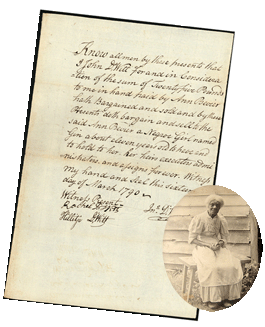 Know all men by these presents that
I John DWitt for and in Considera
tion of the sum of Twenty five Pounds
to me in hand paid by Ann
hath Bargained and sold and by these
Presents doth bargain and sell to the
said Ann a Negroe Girl named
Gin about eleven years old to have and
to hold to her Her Heirs executors Admi
nistrators and assigns forever. Witness
my hand and Seal this
day of March 1790
Witness Present
DWitt